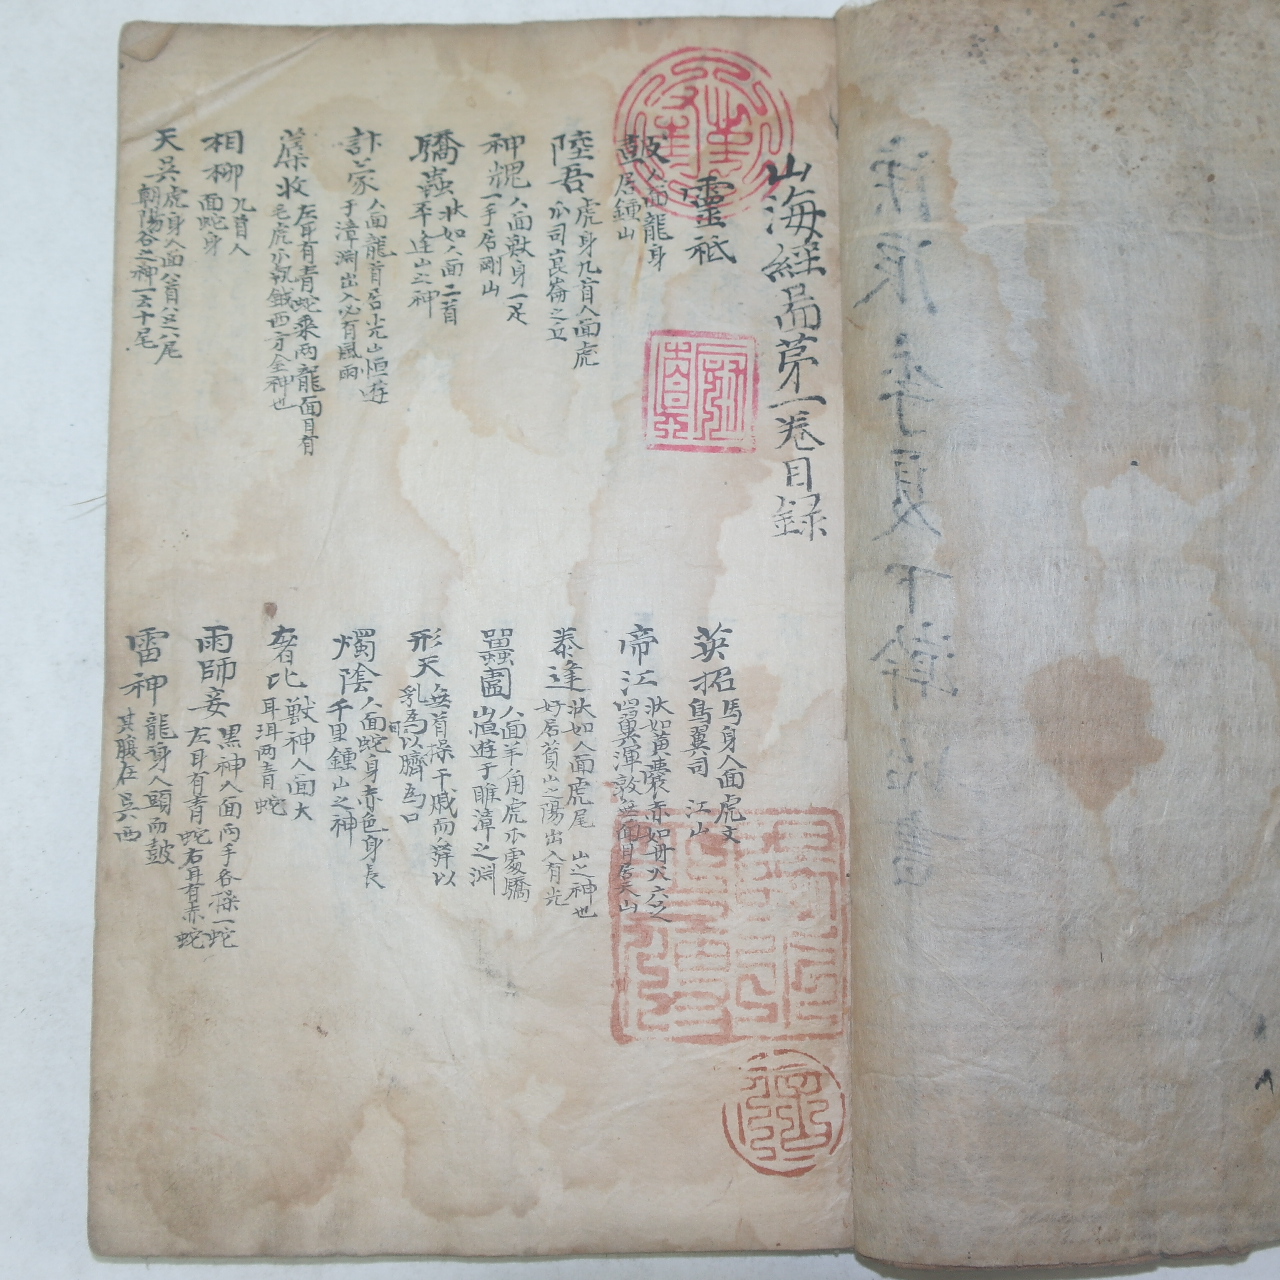 山海經啚苐一卷目録
靈祗
鼓 人面龍身
居鍾山
英招 馬身人面虎文
鳥翼司 江山
陸吾 虎身九首人面虎
爪司崑崙之丘
帝江 狀如黃囊赤如丹火六足
四翼渾敦無面目居天山
神䰠 人面獸身一足
一手居剛山
泰逢 狀如人面虎尾 山之神也
好居萯山之陽出入有光
驕蟲 狀如人面二首
平逢山之神
䵷圍 人面羊角虎爪處驕
山恒遊于睢漳之淵
計蒙 人面龍首居光山恒遊
于漳淵出入必有風雨
形天 無首操干戚而舞以
乳爲目以臍爲口
蓐收 左耳有青蛇乘兩龍面目有
毛虎爪執鉞西方金神也
燭陰 人面蛇身赤色身長
千里鍾山之神
相柳 九首人
面蛇身
奢比 獸神人面大
耳珥兩青蛇
天吳 虎身人面八首八足八尾
朝陽谷之神一云十尾
雨師妾 黑神人面兩手各操一蛇
左耳有青蛇右耳有赤蛇
雷神 龍身人頭而鼓
其腹在吳西